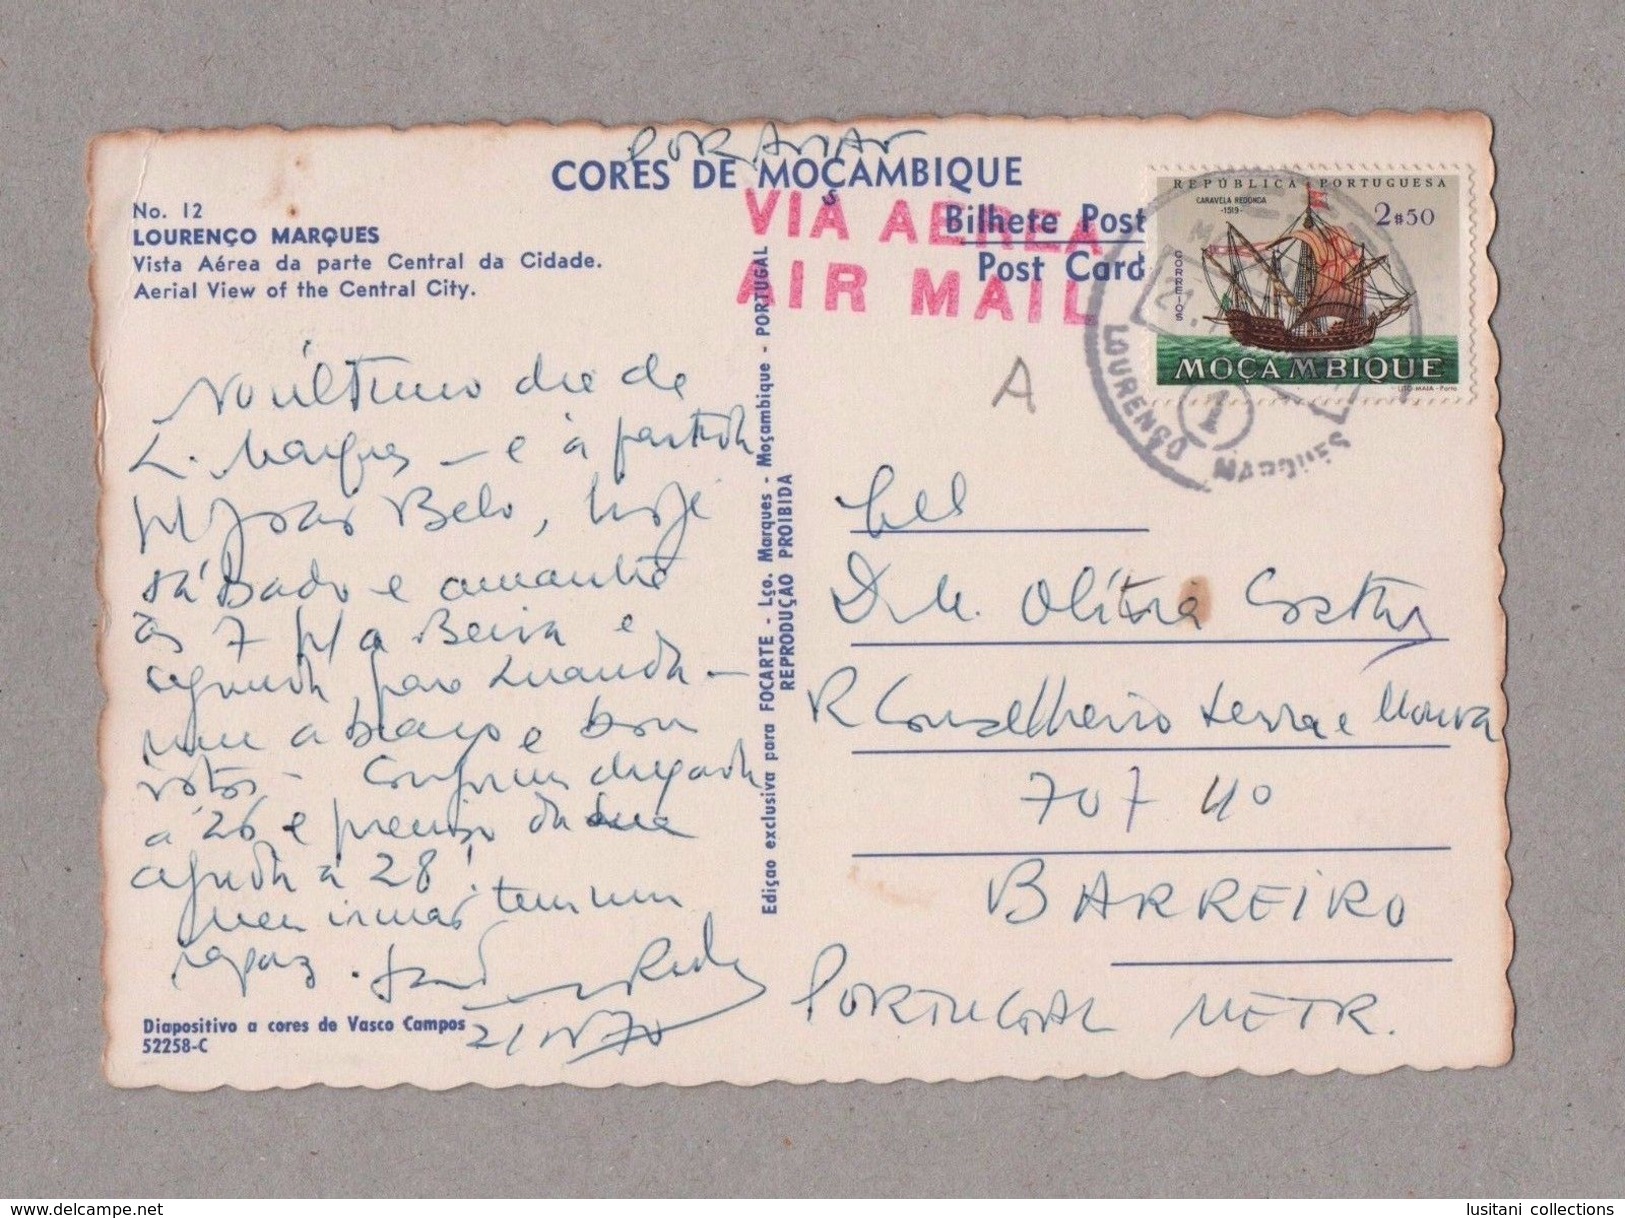 POR AVIÃO
CORES DE MOÇAMBIQUE
No. 12
LOURENÇO MARQUES
Vista Aérea da parte Central da Cidade.
Aerial View of the Central City.
VIA AEREA
AIR MAIL
Bilhete Post
Post Card
REPÚBLICA PORTUGUESA
CARAVELA REDONDA
-1519-
2$50
CORREIOS
MOÇAMBIQUE
LITO MAIA - Porto
LOURENÇO MARQUES
A
No último dia de
L. Marques - e à partida
p/ João Belo, hoje
sábado e amanhã
às 7 p/ a Beira e
segunda para Luanda -
um abraço e bons
votos - Confirm chegada
a 26 e preciso da
ajuda a 28!
meu irmão tem um
rapaz.
21 70
Diapositivo a cores de Vasco Campos
52258-C
Edição exclusiva para FOCARTE - Lço. Marques - Moçambique - PORTUGAL
REPRODUÇÃO PROIBIDA
D. M. Olívia
R Conselheiro Serra e Moura
707 4º
BARREIRO
PORTUGAL METR.
lusitani collections
delcampe.net